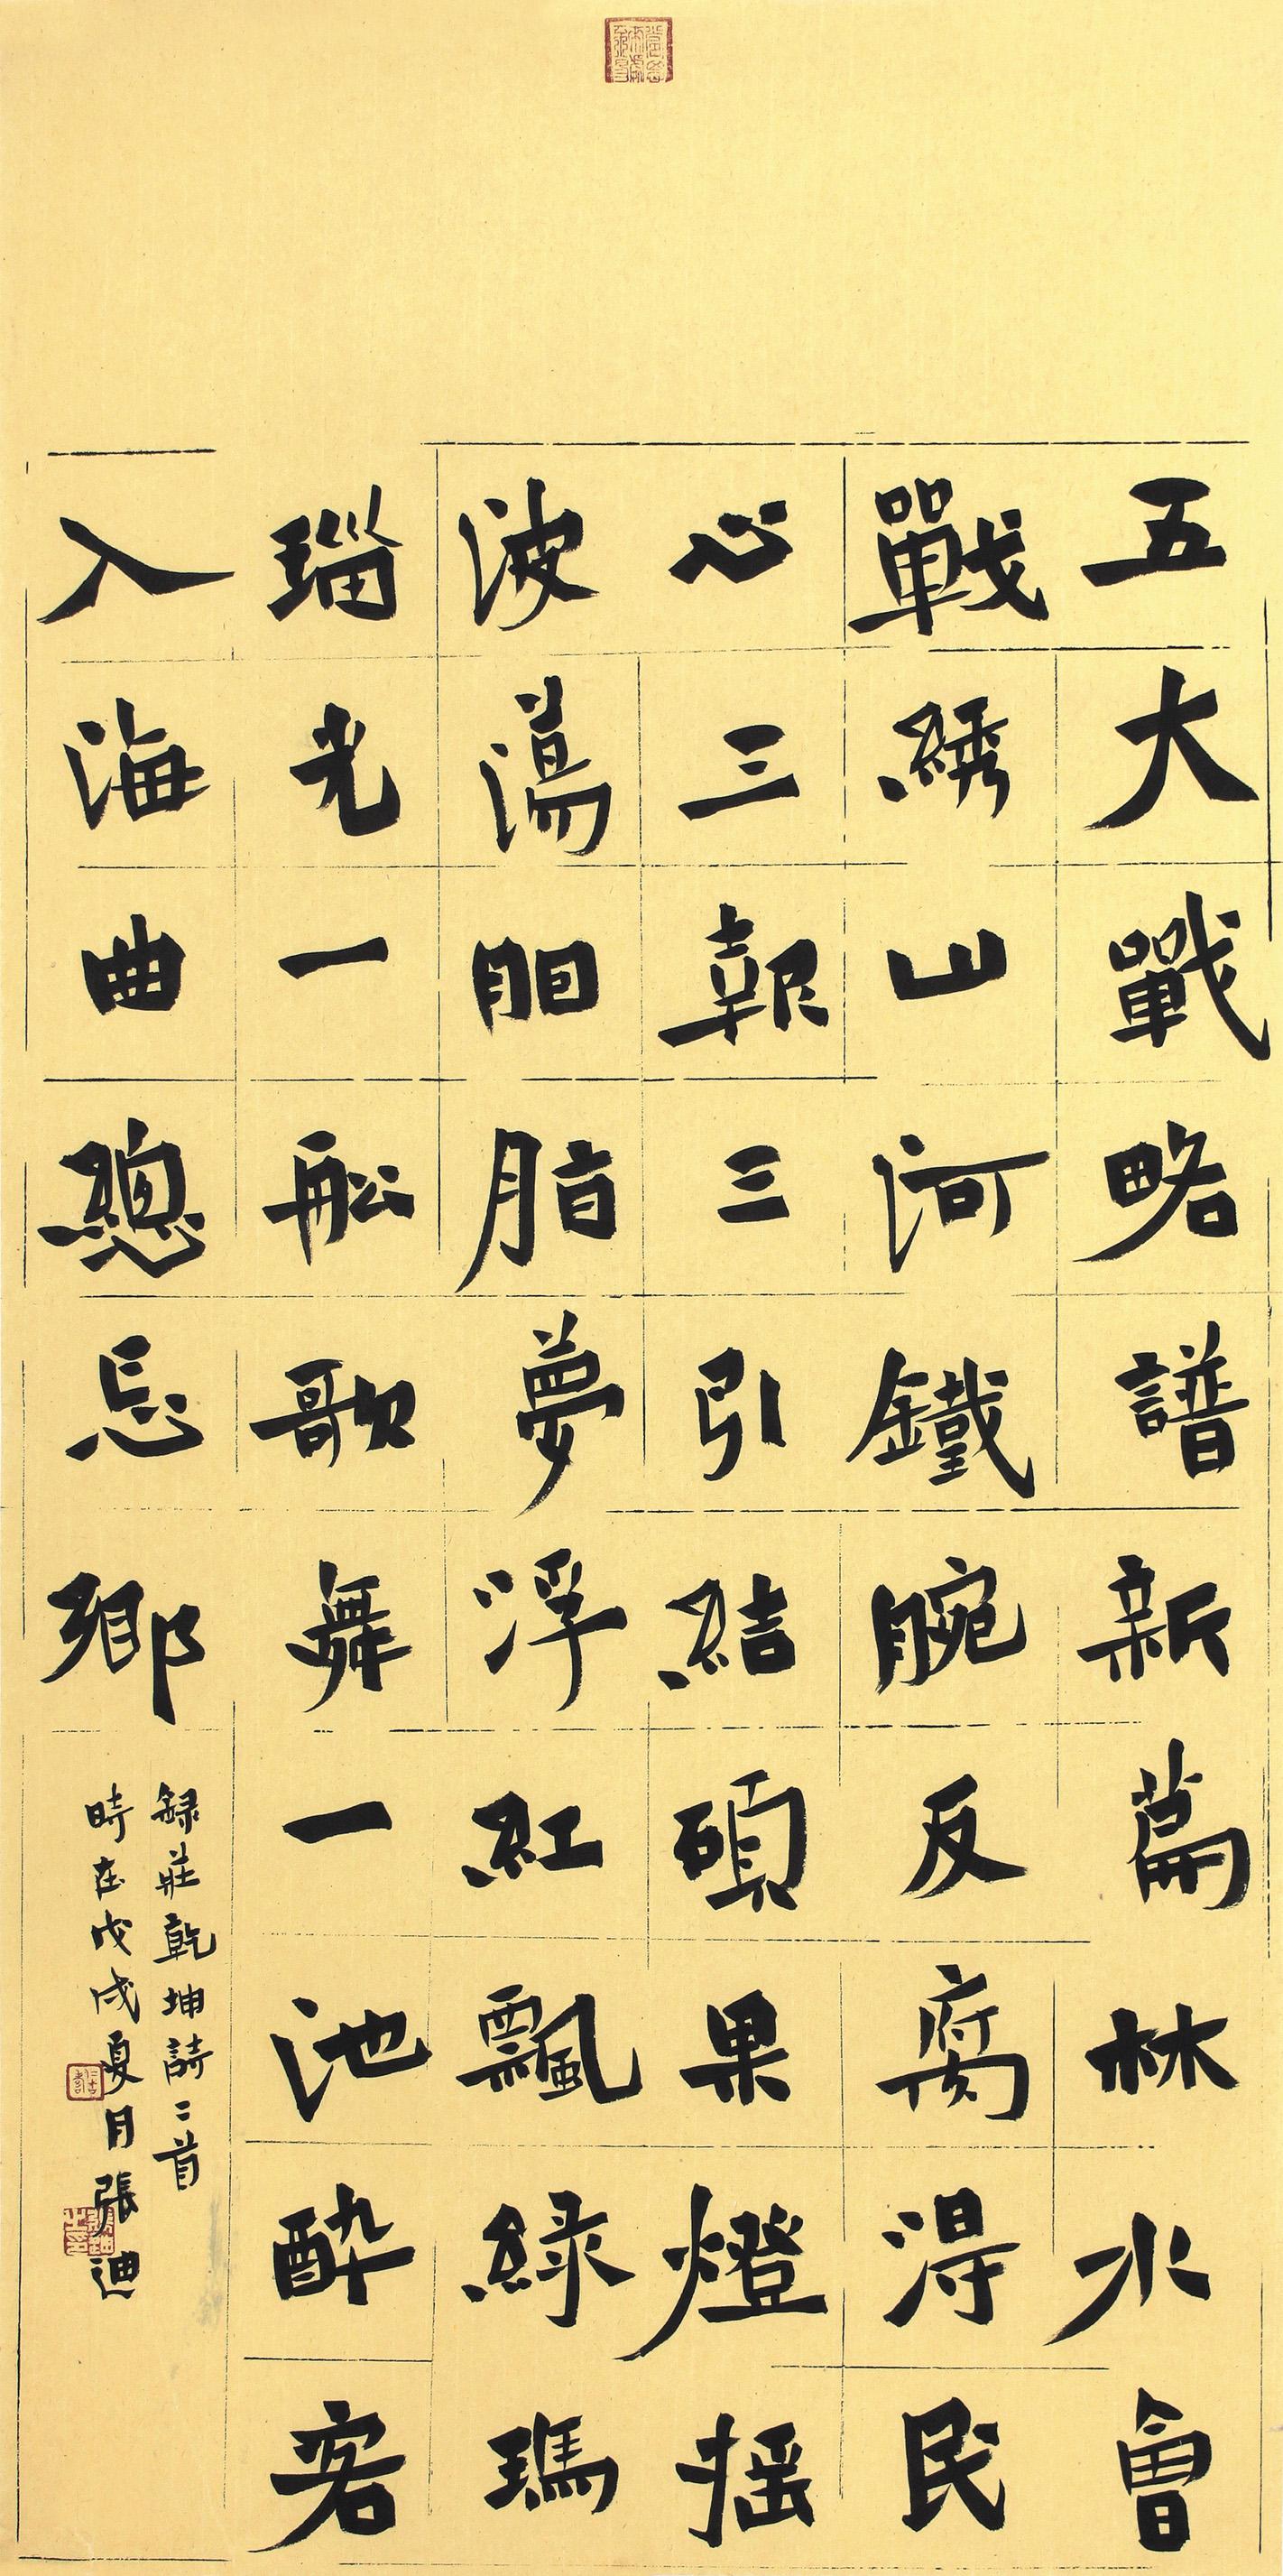 五大戰略譜新篇林水會
戰綉山河鐵腕反腐得民
心三報三引結碩果燈摇
波蕩胭脂夢浮紅飄緑瑪
瑙光一船歌舞一池醉客
入海曲總忘鄉
録莊乾坤詩二首
時在戊戌夏月張迪